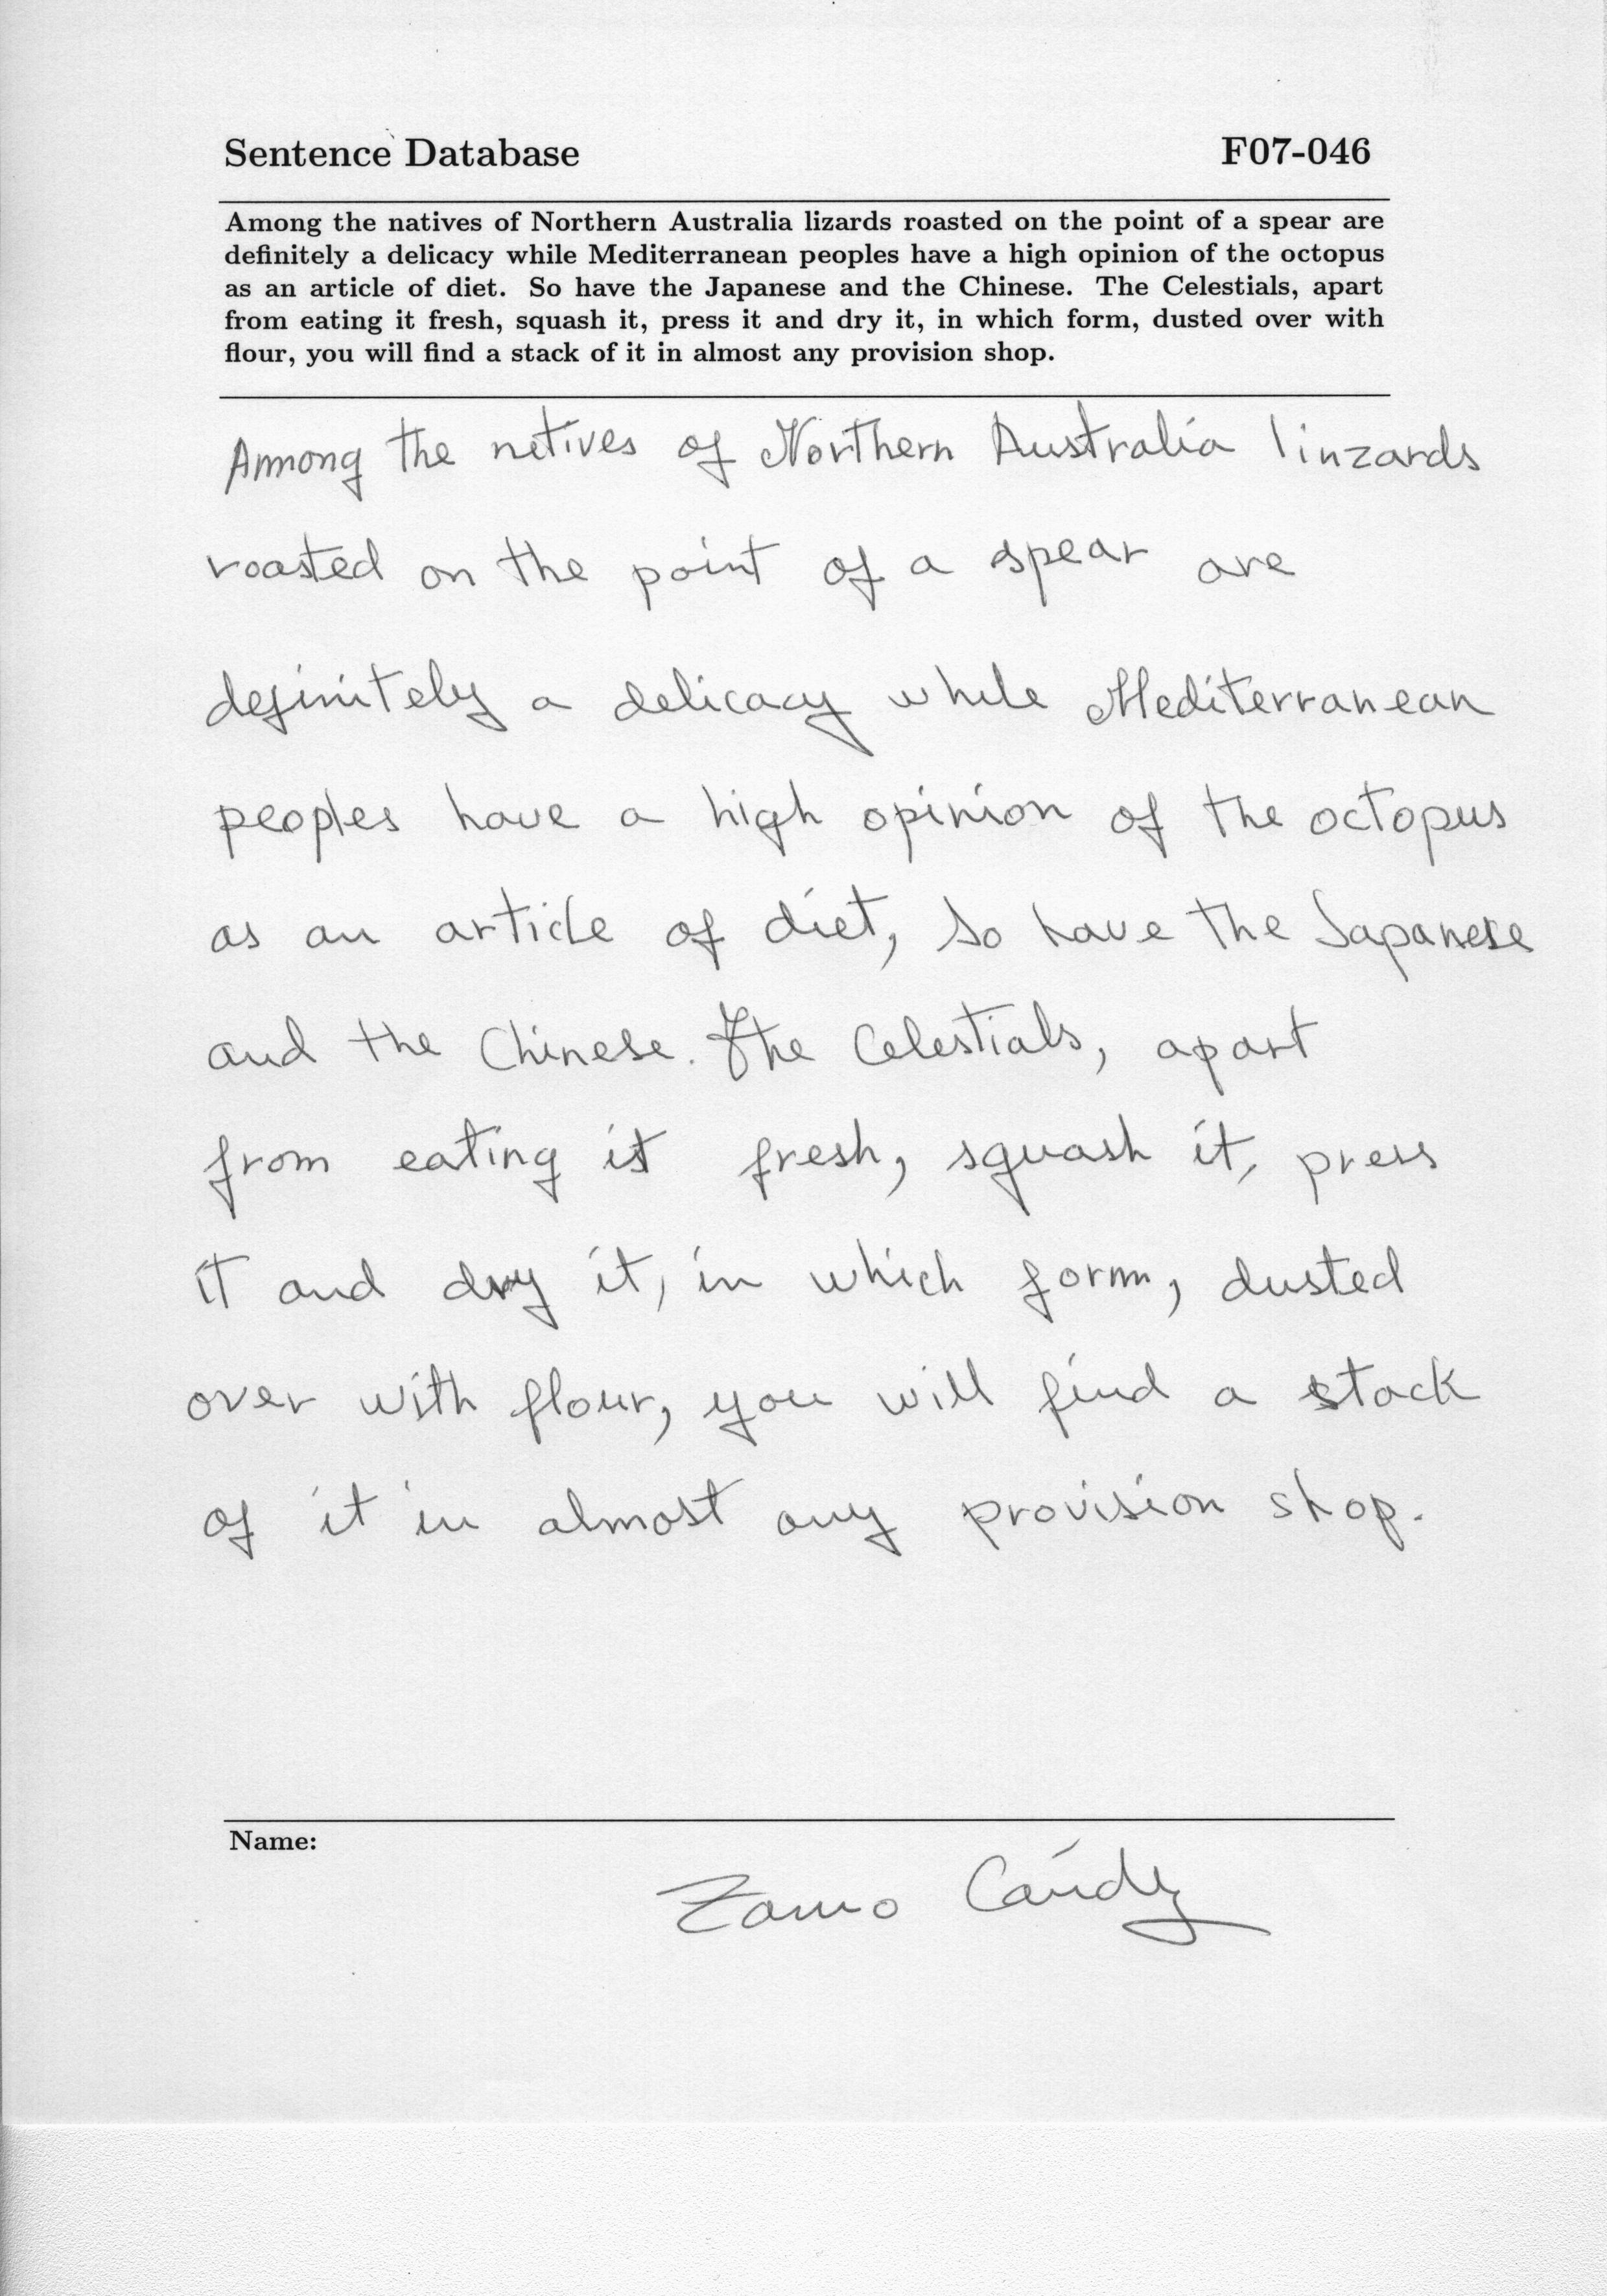 Sentence Database F07-046
Among the natives of Northern Australia lizards roasted on the point of a spear are
definitely a delicacy while Mediterranean peoples have a high opinion of the octopus
as an article of diet. So have the Japanese and the Chinese. The Celestials, apart
from eating it fresh, squash it, press it and dry it, in which form, dusted over with
flour, you will find a stack of it in almost any provision shop.
Among the netives of Northern Australia linzards
roasted on the point of a spear are
definitely a delicacy while Mediterranean
peoples have a high opinion of the octopus
as an article of diet, so have the Japanese
and the Chinese. The Celestials, apart
from eating it fresh, squash it, press
it and dry it, in which form, dusted
over with flour, you will find a stack
of it in almost any provision shop.
Name: